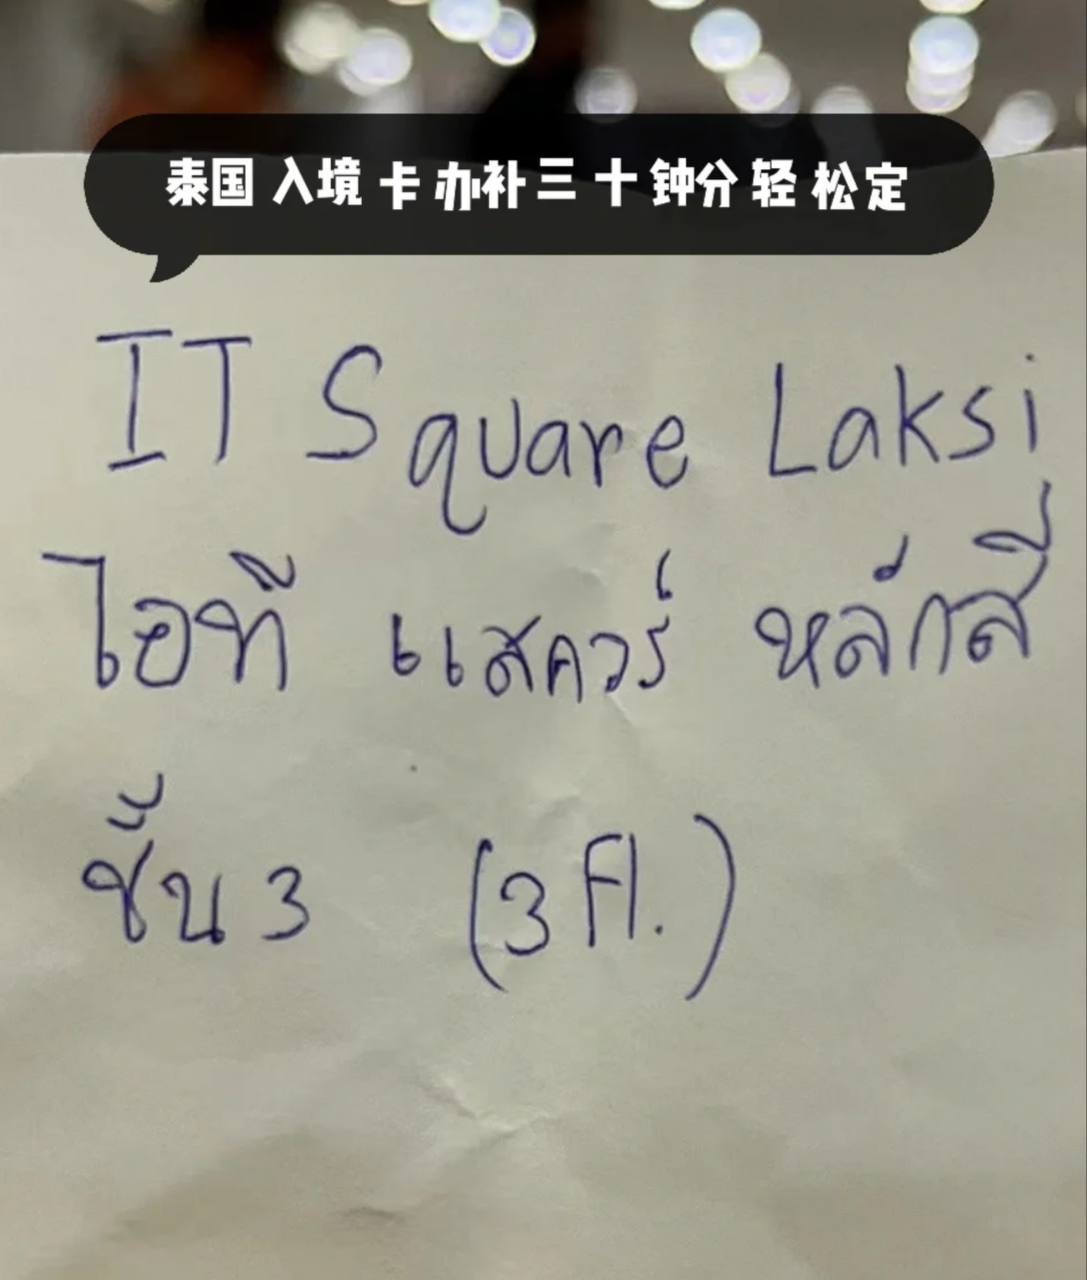 泰国入境卡办补三十钟分轻松定
IT Square Laksi
ไอที แสควร์ หลักสี่
ชั้น 3 (3 Fl.)